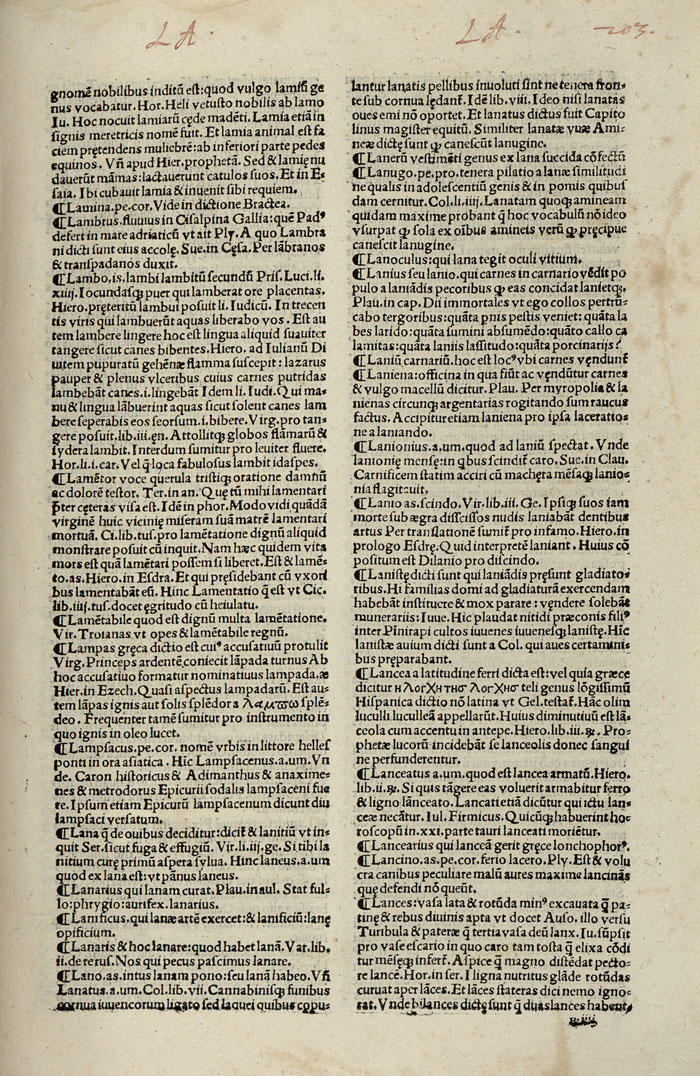 LA. LA. 203.
gnomẽ nobilibus inditũ est: quod vulgo lamiũ ge
nus vocabatur. Hor. Heli vetusto nobilis ab lamo
Iu. Hoc nocuit lamiarũ cęde madẽti. Lamia etiã in
signis meretricis nomẽ fuit. Et lamia animal est fa
ciem prętendens muliebrẽ: ab inferiori parte pedes
equinos. Vñ apud Hier. prophetã. Sed & lamię nu
dauerũt mãmas: lactauerunt catulos suos. Et in E⸗
saia. Ibi cubauit lamia & inuenit sibi requiem.
¶Lamina. pe. cor. Vide in dictione Bractea.
¶Lambrus. fluuius in Cisalpina Gallia: quẽ Padꝰ
defert in mare adriaticũ vt ait Ply. A quo Lambra
ni dicti sunt eius accolę. Sue. in Cęsa. Per lãbranos
& transpadanos duxit.
¶Lambo. is. lambi lambitũ secundũ Pris. Luci. li.
xiiij. Iocundasq; puer qui lamberat ore placentas.
Hiero. pręteritũ lambui posuit li. Iudicũ. In trecen
tis viris qui lambuerũt aquas liberabo vos. Est au
tem lambere lingere hoc est lingua aliquid suauiter
tangere sicut canes bibentes. Hiero. ad Iulianũ Di
uitem pupuratũ gehẽnæ flamma suscepit: lazarus
pauper & plenus vlceribus cuius carnes putridas
lambebãt canes. i. lingebãt Idem li. Iudi. Qui ma⸗
nu & lingua lãbuerint aquas sicut solent canes lam
bere seperabis eos seorsum. i. bibere. Virg. pro tan⸗
gere posuit. lib. iij. en. Attollitq; globos flãmarũ &
sydera lambit. Interdum sumitur pro leuiter fluere.
Hor. li. i. car. Vel q̃ loca fabulosus lambit idaspes.
¶Lamẽtor voce querula tristiq; oratione damnũ
ac dolorẽ testor. Ter. in an. Quę tũ mihi lamentari
pręter cęteras visa est. Idẽ in phor. Modo vidi quãdã
virginẽ huic vicinię miseram suã matrẽ lamentari
mortuã. Ci. lib. tus. pro lamẽtatione dignũ aliquid
monstrare posuit cũ inquit. Nam hæc quidem vita
mors est quã lamẽtari possem si liberet. Est & lamẽ⸗
to. as. Hiero. in Esdra. Et qui pręsidebant cũ vxori
bus lamentabãt eũ. Hinc Lamentatio q̃ est vt Cic.
lib. iiij. tus. docet ęgritudo cũ heiulatu.
¶Lamẽtabile quod est dignũ multa lamẽtatione.
Vir. Troianas vt opes & lamẽtabile regnũ.
¶Lampas gręca dictio est cuiꝰ accusatiuũ protulit
Virg. Princeps ardentẽ coniecit lãpada turnus Ab
hoc accusatiuo formatur nominatiuus lampada. æ
Hier. in Ezech. Quasi aspectus lampadarũ. Est au⸗
tem lãpas ignis aut solis splẽdor a λαμπω splẽ⸗
deo. Frequenter tamẽ sumitur pro instrumento in
quo ignis in oleo lucet.
¶Lampsacus. pe. cor. nomẽ vrbis in littore helles
ponti in ora asiatica. Hic Lampsacenus. a. um. Vn
de. Caron historicus & Adimanthus & anaxime⸗
nes & metrodorus Epicurii sodalis lampsaceni fue
re. Ipsum etiam Epicurũ lampsacenum dicunt diu
lampsaci versatum.
¶Lana q̃ de ouibus deciditur: dicit̃ & lanitiũ vt in⸗
quit Ser. sicut fuga & effugiũ. Vir. li. iij. ge. Si tibi la
nitium curę primũ aspera sylua. Hinc laneus. a. um
quod ex lana est: vt pãnus laneus.
¶Lanarius qui lanam curat. Plau. in aul. Stat ful⸗
lo: phrygio: aurifex. lanarius.
¶Lanificus. qui lanæ artẽ exercet: & lanificiũ: lanę
opificium.
¶Lanaris & hoc lanare: quod habet lanã. Var. lib.
ii. de re rus. Nos qui pecus pascimus lanare.
¶Lano. as. intus lanam pono: seu lanã habeo. Vñ
Lanatus. a. um. Col. lib. vii. Cannabinisq; funibus
cornua iuuencorum ligato sed laquei quibus copu⸗
lantur lanatis pellibus inuoluti sint ne tenera fron⸗
te sub cornua lędant̃. Idẽ lib. viii. Ideo nisi lanatas
oues emi nõ oportet. Et lanatus dictus fuit Capito
linus magister equitũ. Similiter lanatæ vuæ Ami⸗
neæ dictę sunt ꝙ canescũt lanugine.
¶Lanerũ vestimẽti genus ex lana succida cõfectũ
¶Lanugo. pe. pro. tenera pilatio a lanæ similitudi
ne qualis in adolescentiũ genis & in pomis quibus
dam cernitur. Col. li. iiij. Lanatam quoq; amineam
quidam maxime probant q̃ hoc vocabulũ nõ ideo
vsurpat ꝙ sola ex oĩbus amineis verũ ꝙ pręcipue
canescit lanugine.
¶Lanoculus: qui lana tegit oculi vitium.
¶Lanius seu lanio. qui carnes in carnario vẽdit po
pulo a laniãdis pecoribus ꝙ eas concidat lanietq;.
Plau. in cap. Dii immortales vt ego collos pertrũ⸗
cabo tergoribus: quãta pnis pestis veniet: quãta la
bes larido: quãta sumini absumẽdo: quãto callo ca
lamitas: quãta laniis lassitudo: quãta porcinariis?
¶Laniũ carnariũ. hoc est locꝰ vbi carnes vẽdunt̃
¶Laniena: officina in qua fiũt ac vẽdũtur carnes
& vulgo macellũ dicitur. Plau. Per myropolia & la
nienas circunq; argentarias rogitando sum raucus
factus. Accipitur etiam laniena pro ipsa laceratio⸗
ne a laniando.
¶Lanionius. a. um. quod ad laniũ spectat. Vnde
lanionię mensę: in qbus scindit̃ caro. Sue. in Clau.
Carnificem statim acciri cũ machęra mẽsaq; lanio⸗
nia flagitauit.
¶Lanio as. scindo. Vir. lib. iii. Ge. Ipsiq; suos iam
morte sub ægra discissos nudis laniabãt dentibus
artus Per translationẽ sumit̃ pro infamo. Hiero. in
prologo Esdrę. Quid interpretẽ laniant. Huius cõ
positum est Dilanio pro discindo.
¶Lanistę dicti sunt qui laniãdis pręsunt gladiato⸗
ribus. Hi familias domi ad gladiaturã exercendam
habebãt instituere & mox parare: vẽndere solebãt
munerariis: Iuue. Hic plaudat nitidi præconis filiꝰ
inter Pinirapi cultos iuuenes iuuenesq; lanistę. Hic
lanistæ auium dicti sunt a Col. qui aues certamini⸗
bus pręparabant.
¶Lancea a latitudine ferri dicta est: vel quia græce
dicitur Η λογχητησ λογχησ teli genus lõgissimũ
Hispanica dictio nõ latina vt Gel. testat̃. Hãc olim
luculli luculleã appellarũt. Huius diminutiuũ est lã⸗
ceola cum accentu in antepe. Hiero. lib. iii. ℞. Pro⸗
phetæ lucorũ incidebãt se lanceolis donec sangui
ne perfunderentur.
¶Lanceatus a. um. quod est lancea armatũ. Hiero.
lib. ii. ℞. Si quis tãgere eas voluerit armabitur ferro
& ligno lãnceato. Lancati etiã dicũtur qui ictu lan⸗
ceæ necãtur. Iul. Firmicus. Quicũq; habuerint ho⸗
roscopũ in. xxi. parte tauri lanceati moriẽtur.
¶Lancearius qui lanceã gerit gręce lonchophorꝰ.
¶Lancino. as. pe. cor. ferio lacero. Ply. Est & volu
cra canibus peculiare malũ aures maxime lancinãs
quę defendi nõ queũt.
¶Lances: vasa lata & rotũda minꝰ excauata q̃ pa⸗
tinę & rebus diuinis apta vt docet Auso. illo versu
Turibula & pateræ q̃ tertia vasa deũ lanx. Iu. sũpsit
pro vase escario in quo caro tam tosta q̃ elixa cõdi
tur mẽsęq; infert̃. Aspice q̃ magno distẽdat pecto⸗
re lancẽ. Hor. in ser. I ligna nutritus glãde rotũdas
curuat aper lãces. Et lãces stateras dici nemo igno⸗
rat. Vnde bilances dictę sunt q̃ duas lances habent.